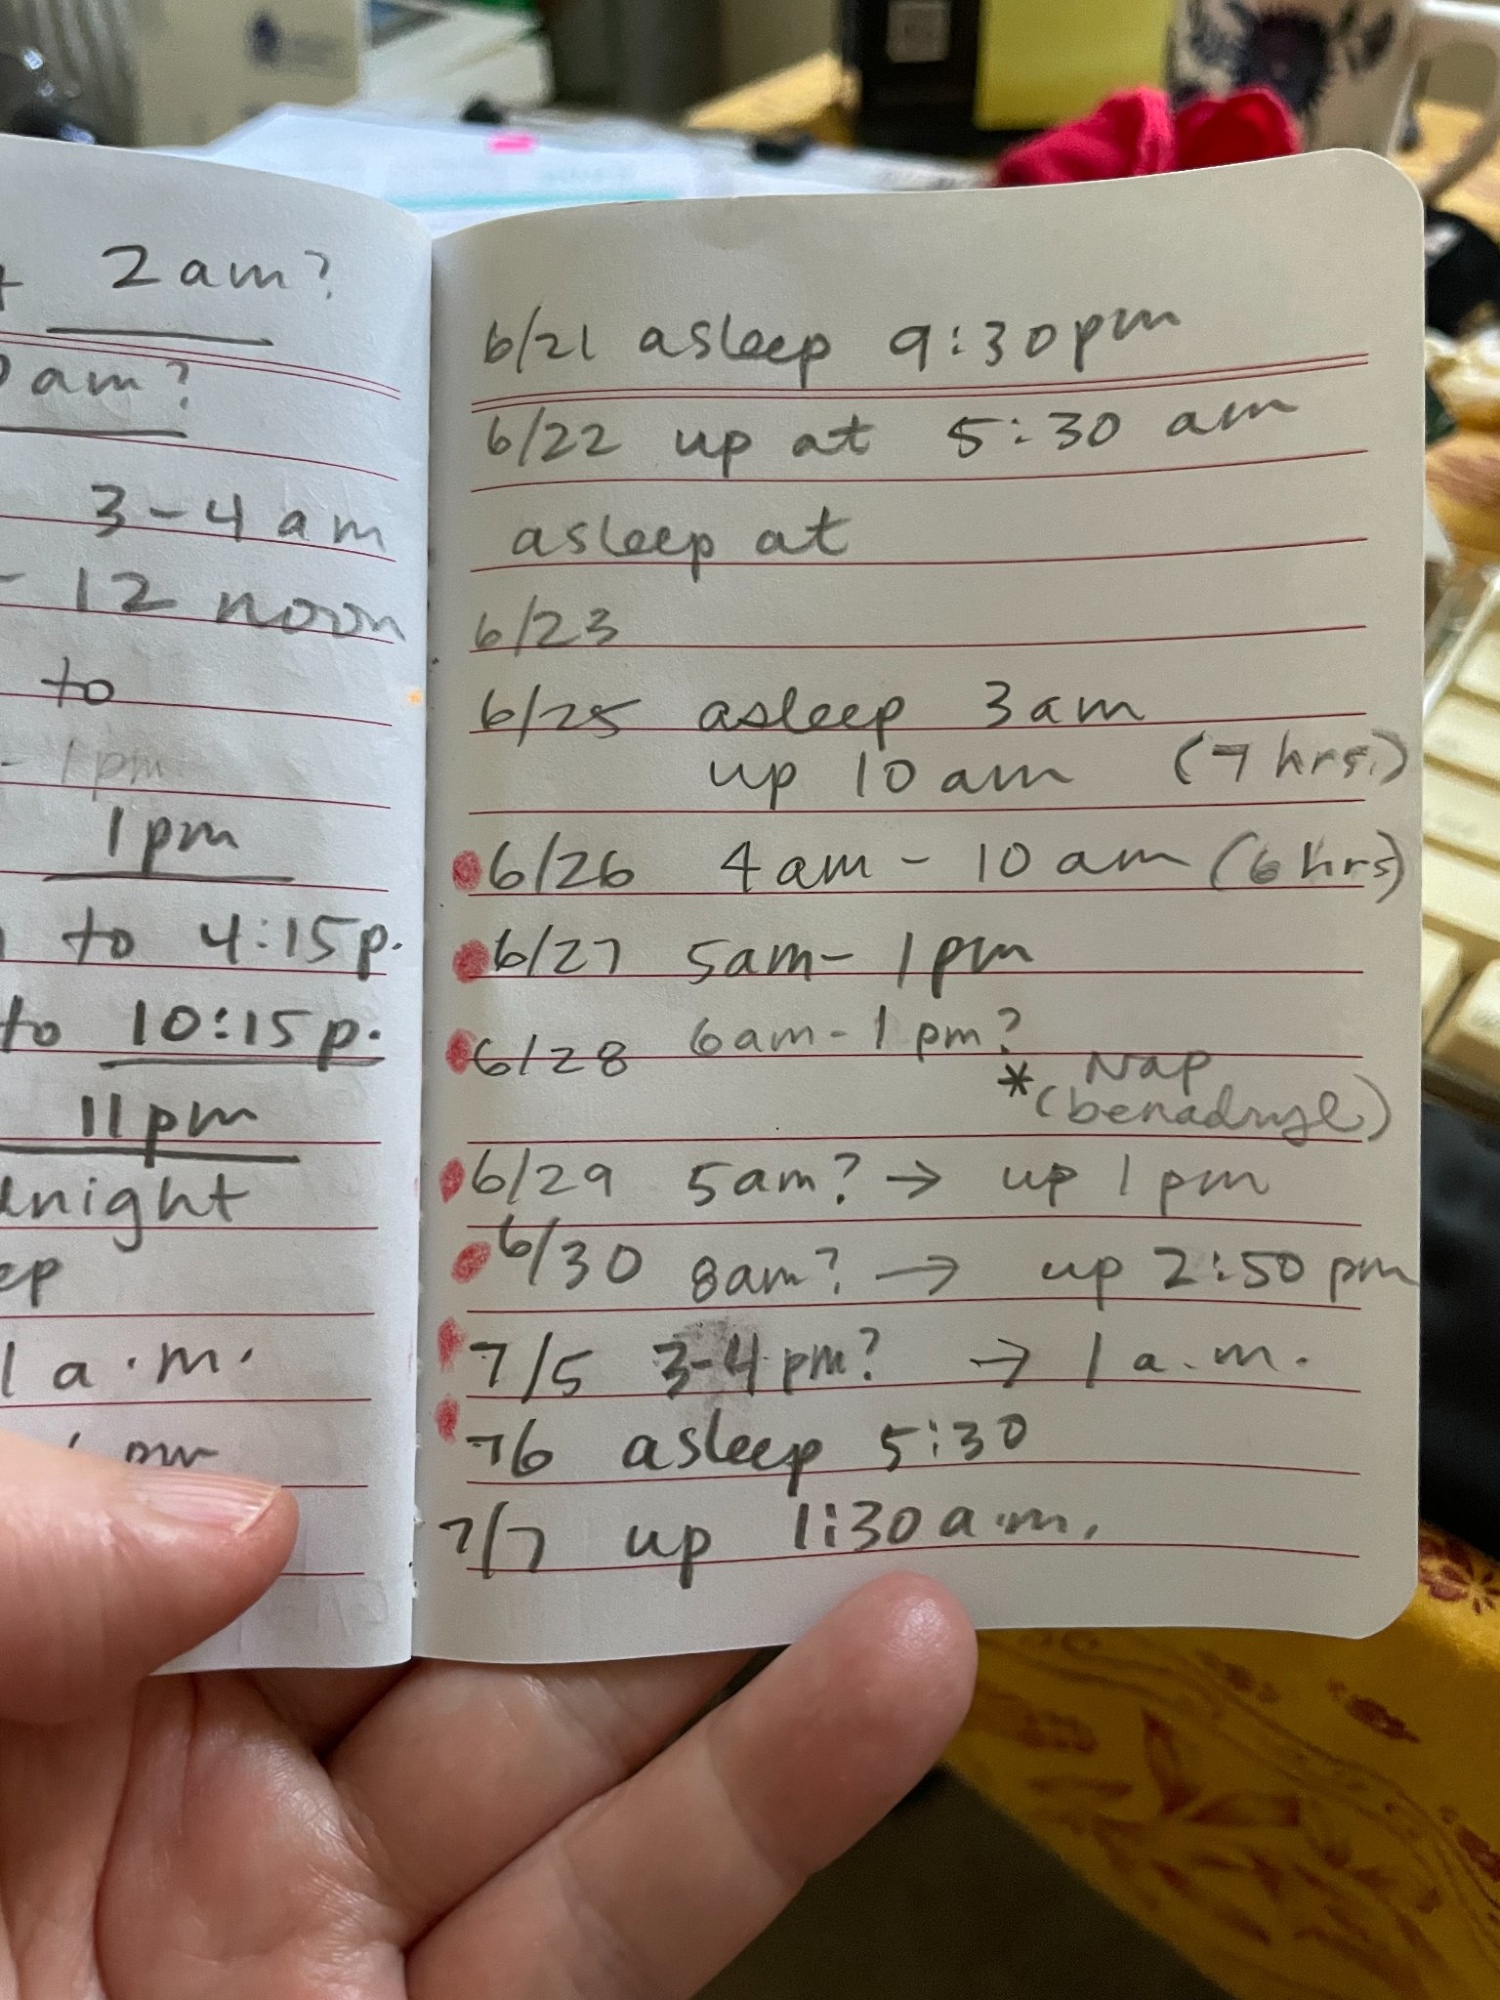 2am?
am?
3-4am
12 noon
to
- 1pm
1pm
to 4:15p.
to 10:15p.
11pm
1 a.m.
6/21 asleep 9:30pm
6/22 up at 5:30 am
asleep at
6/23
6/25 asleep 3am
up 10am (7 hrs.)
6/26 4am - 10am (6 hrs)
6/27 5am - 1pm
6/28 6am - 1pm?
* Nap
(benadryl)
6/29 5am? → up 1pm
6/30 8am? → up 2:50pm
7/5 3-4pm? → 1 a.m.
7/6 asleep 5:30
7/7 up 1:30 a.m.